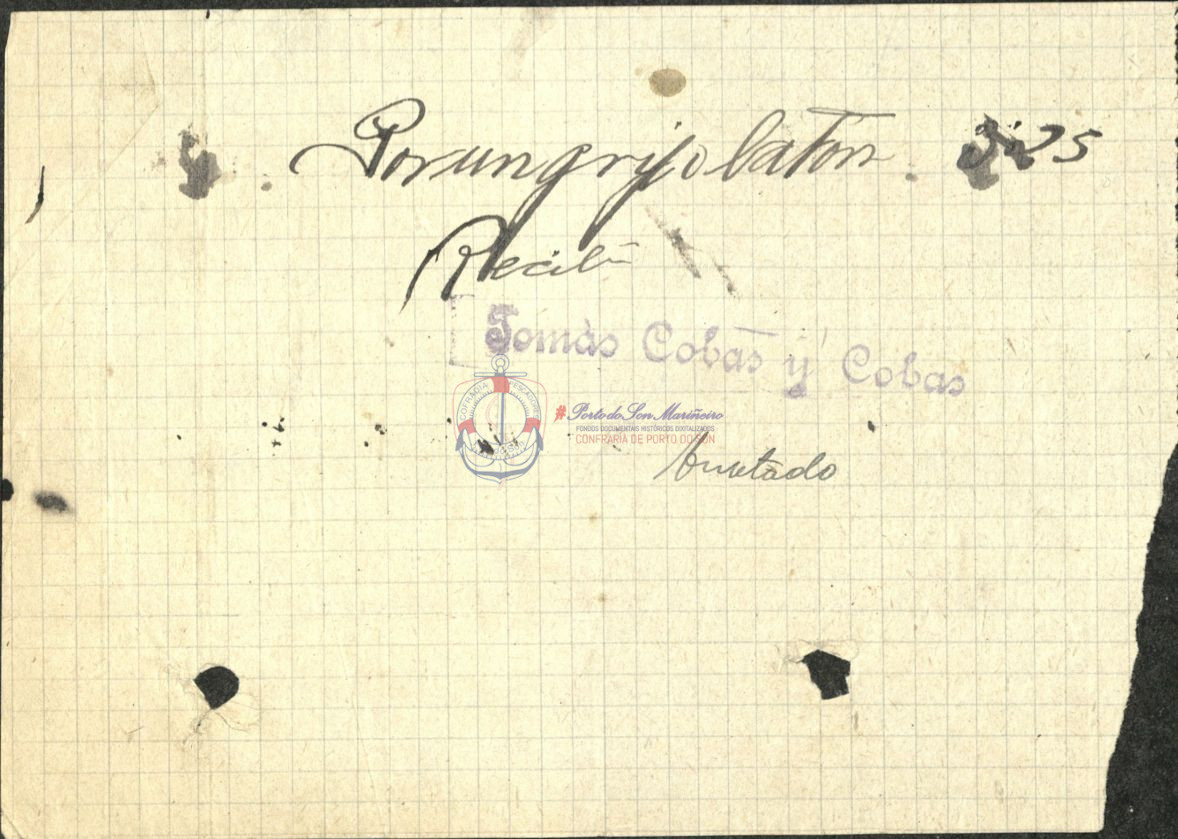 Por un grijo laton 3,25
Recibi
Tomás Cobas y Cobas
COFRADIA PESCADORES
#Porto do Son Mariñeiro
FONDOS DOCUMENTAIS HISTÓRICOS DIXITALIZADOS
CONFRARÍA DE PORTO DO SON